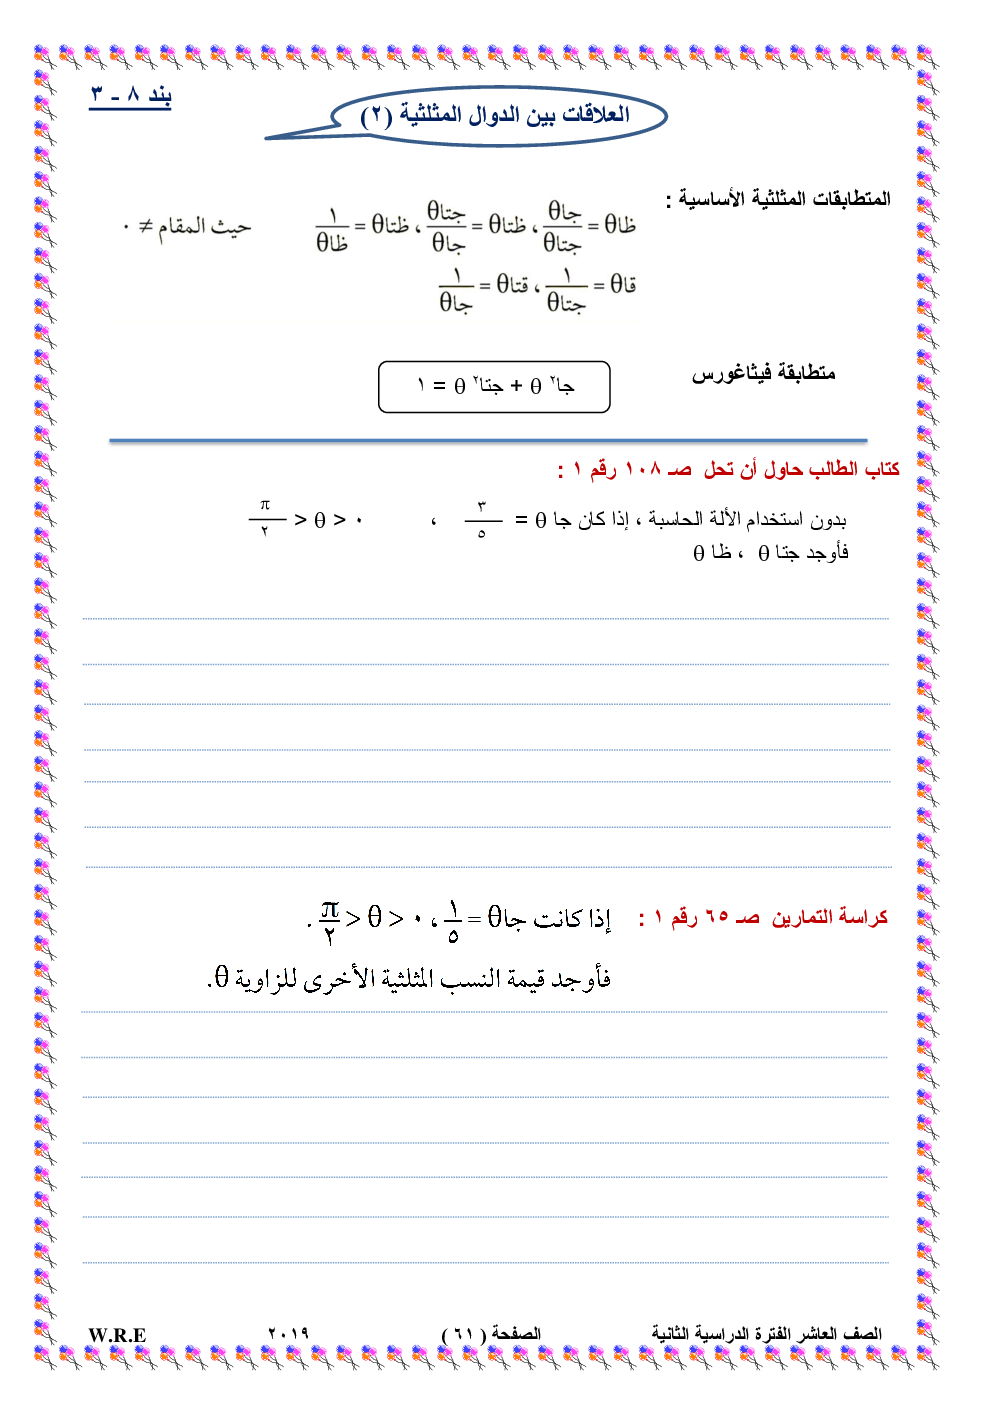 بند ٨ - ٣
العلاقات بين الدوال المثلثية (٢)
المتطابقات المثلثية الأساسية :
ظاθ = جاθ/جتاθ ، ظتاθ = جتاθ/جاθ ، ظتاθ = ١/ظاθ حيث المقام ≠ ٠
قاθ = ١/جتاθ ، قتاθ = ١/جاθ
متطابقة فيثاغورس
جا٢ θ + جتا٢ θ = ١
كتاب الطالب حاول أن تحل صـ ١٠٨ رقم ١ :
بدون استخدام الألة الحاسبة ، إذا كان جا θ = ٣/٥ ، ٠ < θ < π/٢
فأوجد جتا θ ، ظا θ
كراسة التمارين صـ ٦٥ رقم ١ :
إذا كانت جاθ = ١/٥ ، ٠ < θ < π/٢ .
فأوجد قيمة النسب المثلثية الأخرى للزاوية θ.
الصف العاشر الفترة الدراسية الثانية الصفحة ( ٦١ ) ٢٠١٩ W.R.E